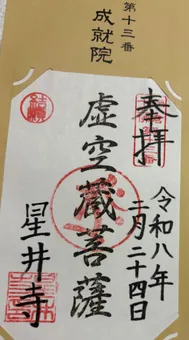 第十三番
成就院
奉拝
令和八年
二月二十四日
虚空蔵菩薩
星井寺